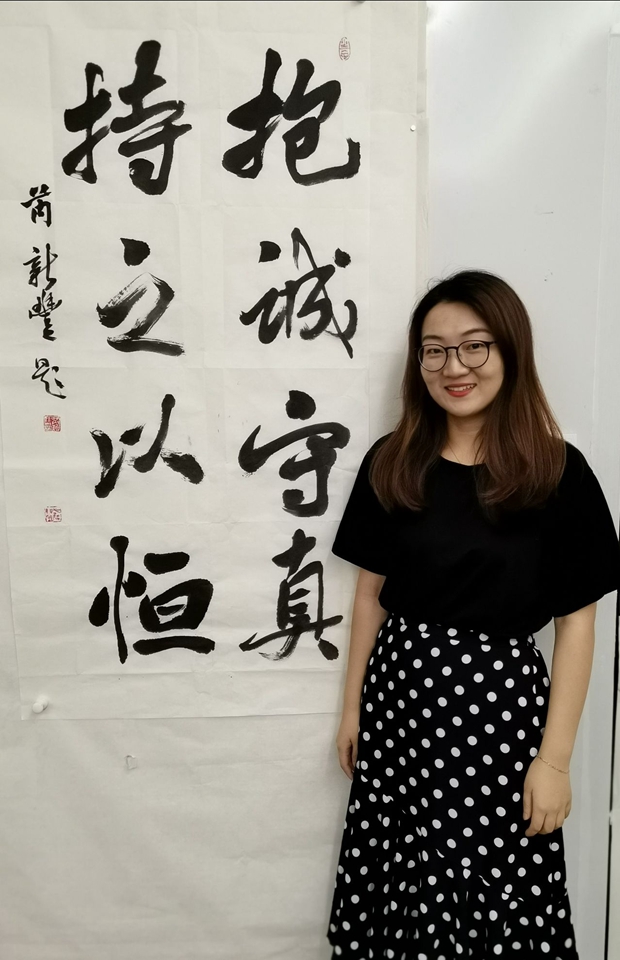 抱诚守真
持之以恒
芮新豐题